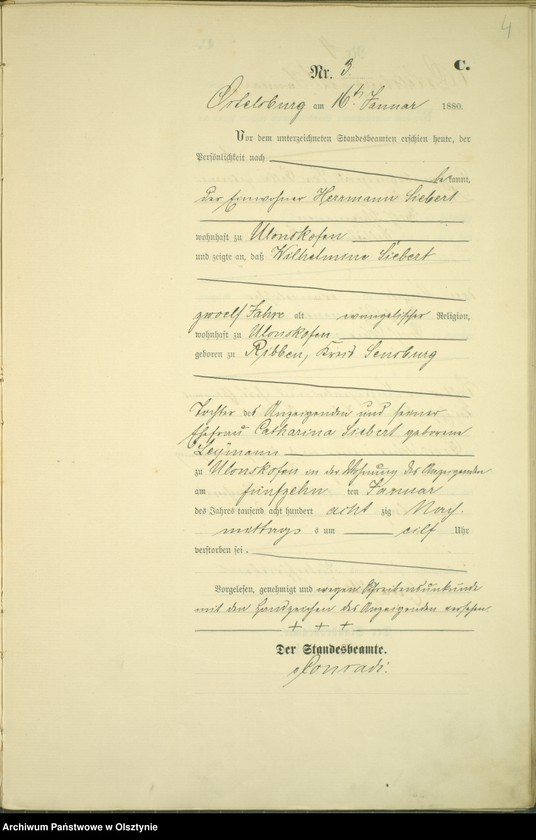 4
C.
Nr. 3.
Ortelsburg am 16ten Januar 1880.
Vor dem unterzeichneten Standesbeamten erschien heute, der
Persönlichkeit nach
bekannt,
der Einwohner Herrmann Siebert
wohnhaft zu Ulonskofen
und zeigte an, daß Wilhelmine Siebert
zwoelf Jahre alt evangelischer Religion,
wohnhaft zu Ulonskofen
geboren zu Ribben, Kreis Sensburg
Tochter des Anzeigenden und seiner
Ehefrau Catharina Siebert geborene
zu Ulonskofen in der Wohnung des Anzeigenden
am fünfzehn ten Januar
des Jahres tausend acht hundert acht zig Nach
mittags um eilf Uhr
verstorben sei.
Vorgelesen, genehmigt und wegen Schreibensunkunde
mit den Handzeichen des Anzeigenden versehen
+ + +
Der Standesbeamte.
Conradi.
Archiwum Państwowe w Olsztynie